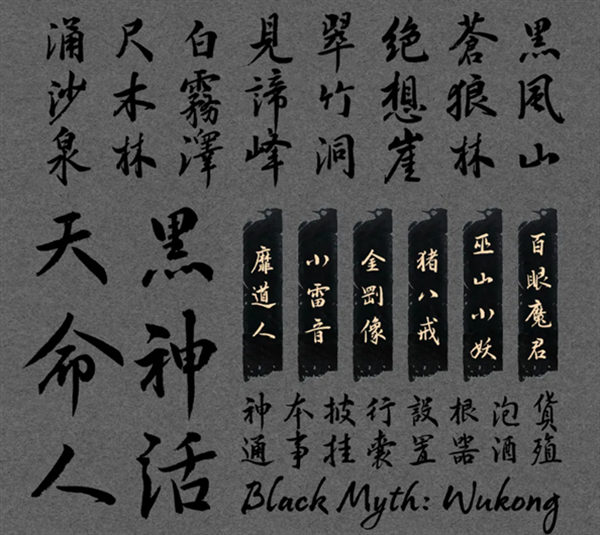 黑風山
蒼狼林
绝想崖
翠竹洞
見諦峰
白霧澤
尺木林
涌沙泉
黑神话
天命人
百眼魔君
巫山小妖
猪八戒
金剛像
小雷音
靡道人
貨殖
泡酒
根器
設置
行囊
披挂
本事
神通
Black Myth: Wukong